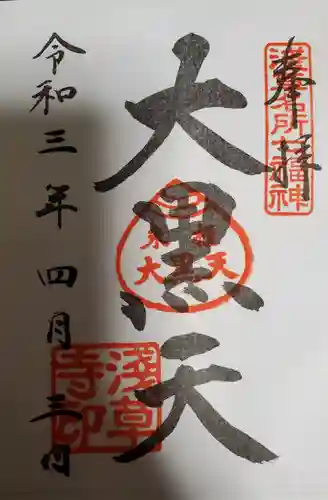 奉拝
浅草名所七福神
大黒天
大黒天
浅草
寺印
令和三年四月三日